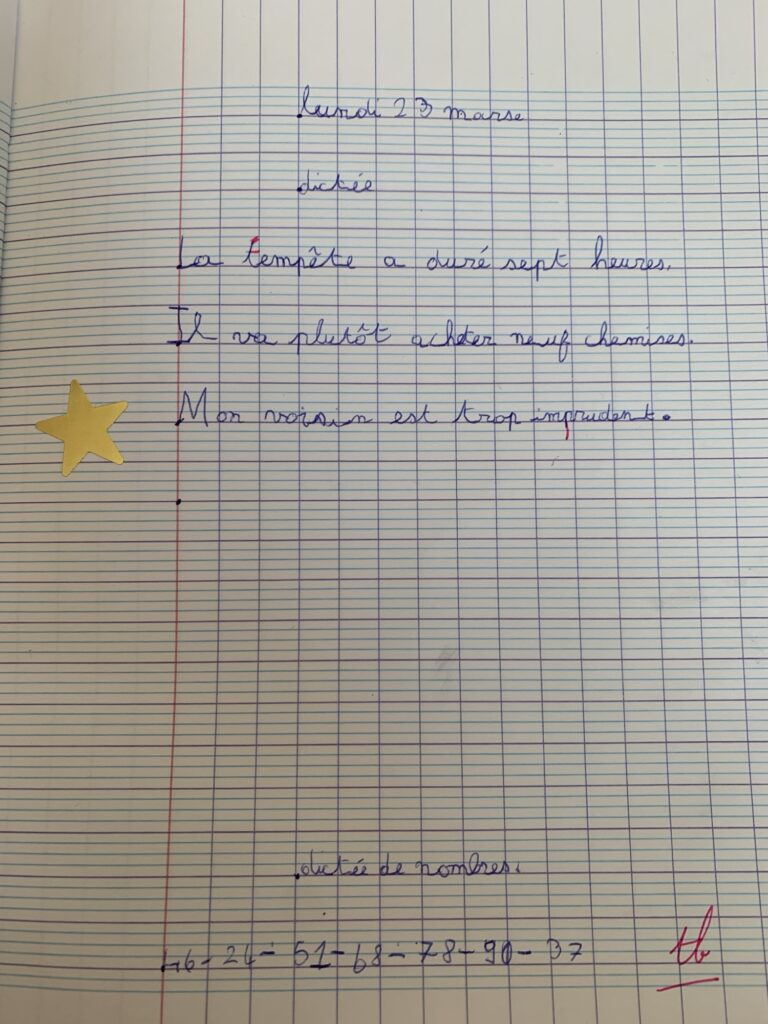 lundi 23 marse
dictée
La tempête a duré sept heures.
Il va plutôt acheter neuf chemises.
Mon voisin est trop imprudent.
dictée de nombres.
46 - 24 - 51 - 68 - 78 - 90 - 37
tb